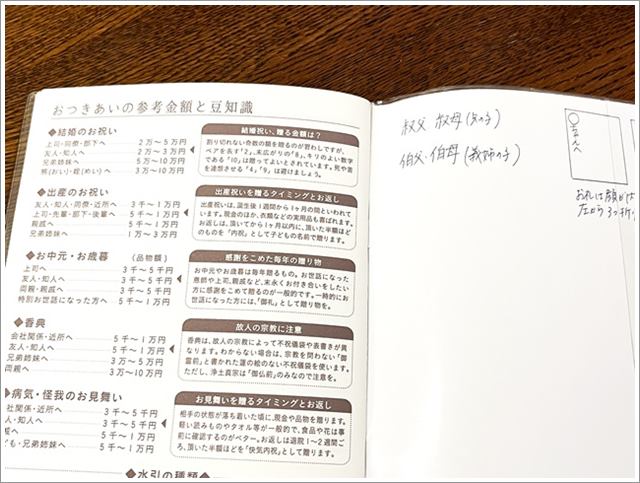 おつきあいの参考金額と豆知識
◆結婚のお祝い
上司・同僚・部下へ 2万〜5万円
友人・知人へ 2万〜3万円
兄弟姉妹へ 5万〜10万円
甥(おい)・姪(めい)へ 5万〜10万円
結婚祝い、贈る金額は?
割り切れない奇数の額を贈るのが習わしですが、
ペアを表す「2」、末広がりの「8」、キリのよい数字
である「10」は贈ってよいとされています。死や苦
を連想させる「4」、「9」は避けましょう。
◆出産のお祝い
友人・知人・同僚・近所へ 3千〜1万円
上司・先輩・部下・後輩へ 5千〜1万円
親戚へ 5千〜1万円
兄弟姉妹へ 1万〜3万円
出産祝いを贈るタイミングとお返し
出産祝いは、誕生後1週間から1ヶ月の間といわれて
います。現金のほか、衣類などの実用品も喜ばれます。
お返しは、頂いてから1ヶ月以内に、頂いた半額ほど
のものを「内祝」として子どもの名前で贈ります。
◆お中元・お歳暮 (品物額)
上司へ 3千〜5千円
友人・知人へ 3千〜5千円
両親・親戚へ 3千〜5千円
特別お世話になった方へ 5千〜1万円
感謝をこめた毎年の贈り物
お中元やお歳暮は毎年贈るもの。お世話になった
恩師や上司、親戚など、末永くお付き合いをしたい
方に感謝をこめて贈るのが一般的です。一時的にお
世話になった方には、「御礼」として贈り物を。
◆香典
会社関係・近所へ 5千〜1万円
友人・知人へ 5千〜1万円
兄弟姉妹へ 3万〜5万円
両親へ 3万〜10万円
故人の宗教に注意
香典は、故人の宗教によって不祝儀袋や表書きが異
なります。わからない場合は、宗教を問わない「御
霊前」と書かれた蓮の絵のない不祝儀袋を使います。
ただし、浄土真宗は「御仏前」のみなので注意を。
◆病気・怪我のお見舞い
社関係・近所へ 3千〜5千円
人・知人へ 3千〜5千円
戚へ 5千〜1万円
ども・兄弟姉妹へ 5千〜1万円
お見舞いを贈るタイミングとお返し
相手の状態が落ち着いた頃に、現金や品物を贈ります。
軽い読みものやタオル等が一般的で、食品や花は事
前に確認するのがベター。お返しは退院1〜2週間ご
ろ、頂いた半額ほどを「快気内祝」として贈ります。
◆水引の種類◆
叔父 叔母(父の子)
伯父・伯母(義姉の子)
○○さんへ
お札は顔が
左から3つ折り